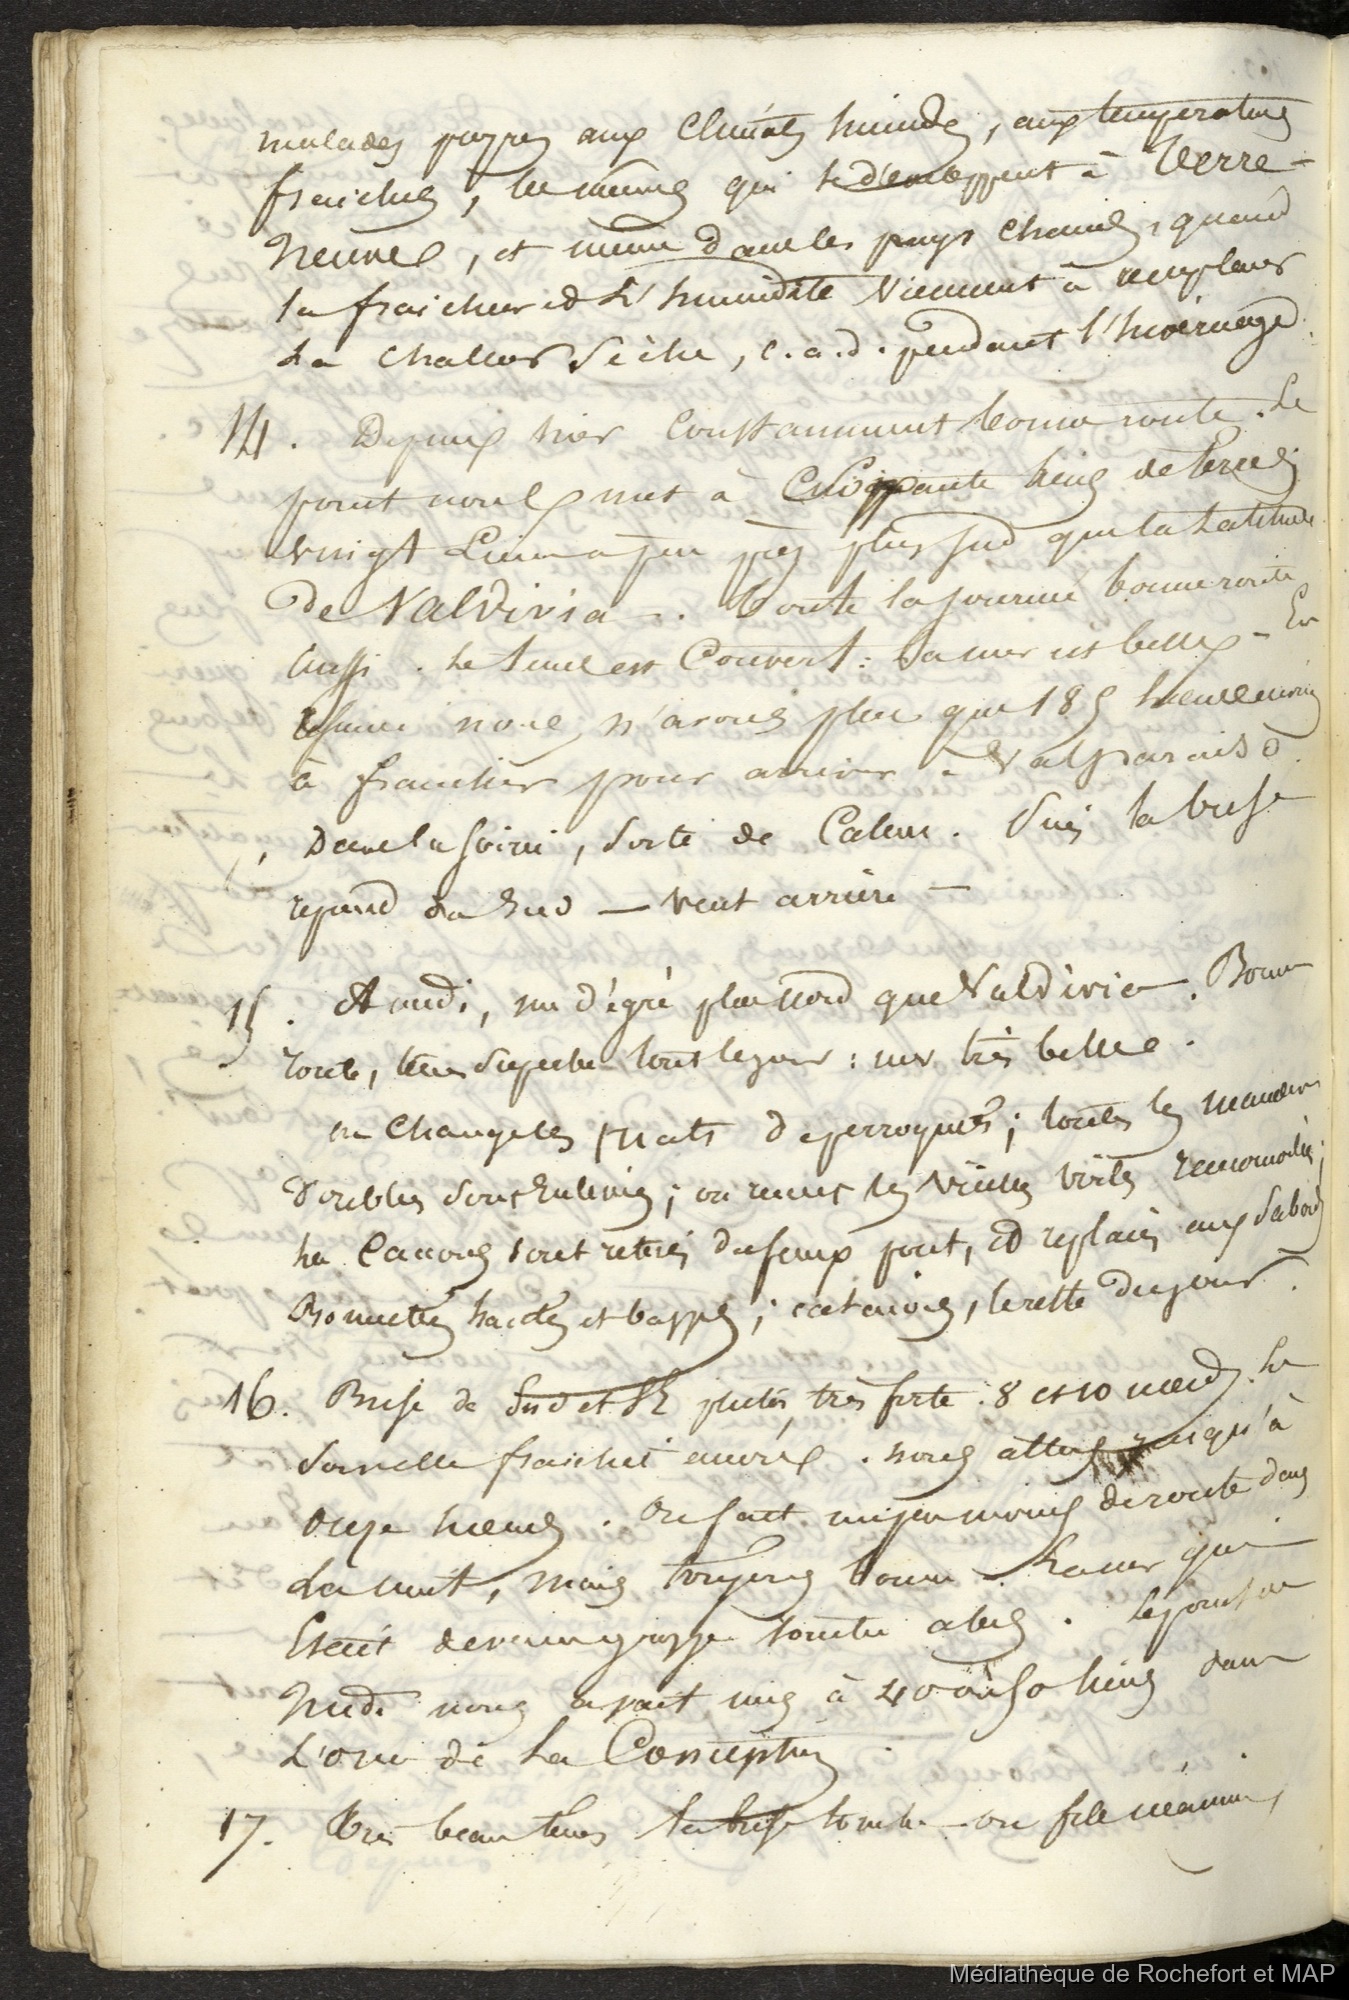 malades propres aux climats humides, aux températures
fraiches, les mêmes qui se développent à Terre-
Neuve, et même dans les pays chauds, quand
la fraicheur et l'humidité viennent à remplacer
la chaleur sèche, c.a.d. pendant l'hivernage.
14. Depuis hier constamment bonne route. Le
point nous met à cinquante lieues de terre
vingt lieues à peu près plus sud que la latitude
de Valdivia -. Toute la journée bonne route
aussi. Le tems est couvert: la mer est belle - En
nous n'avons plus que 185 lieues
à franchir pour arriver à Valparaiso.
Dans la soirée, sorte de calme. Puis la brise
reprend du Sud — vent arrière —
15. A midi, un dégré plus nord que Valdivia. Bonne
route, tems superbe tout le jour: mer très belle.
on change les mats de perroquets; toutes les
doubles sont enlevées; on remet les vieilles voiles
les canons sont retirés du faux pont, et replacés aux sabords
hardes et ; , toilette du jour.
16. Brise de Sud et SE très forte. 8 et 10 nœuds. La
fraichit encore. nous allons jusqu'à
onze nœuds. On fait un peu moins de route dans
la nuit, mais toujours bonne. La mer qui
était devenue grosse tombe . Le point à
midi nous avait mis à 40 ou 50 lieues dans
l'ouest de la Conception.
17. Très beau tems la brise tombe - on file néanmoins,
Médiathèque de Rochefort et MAP